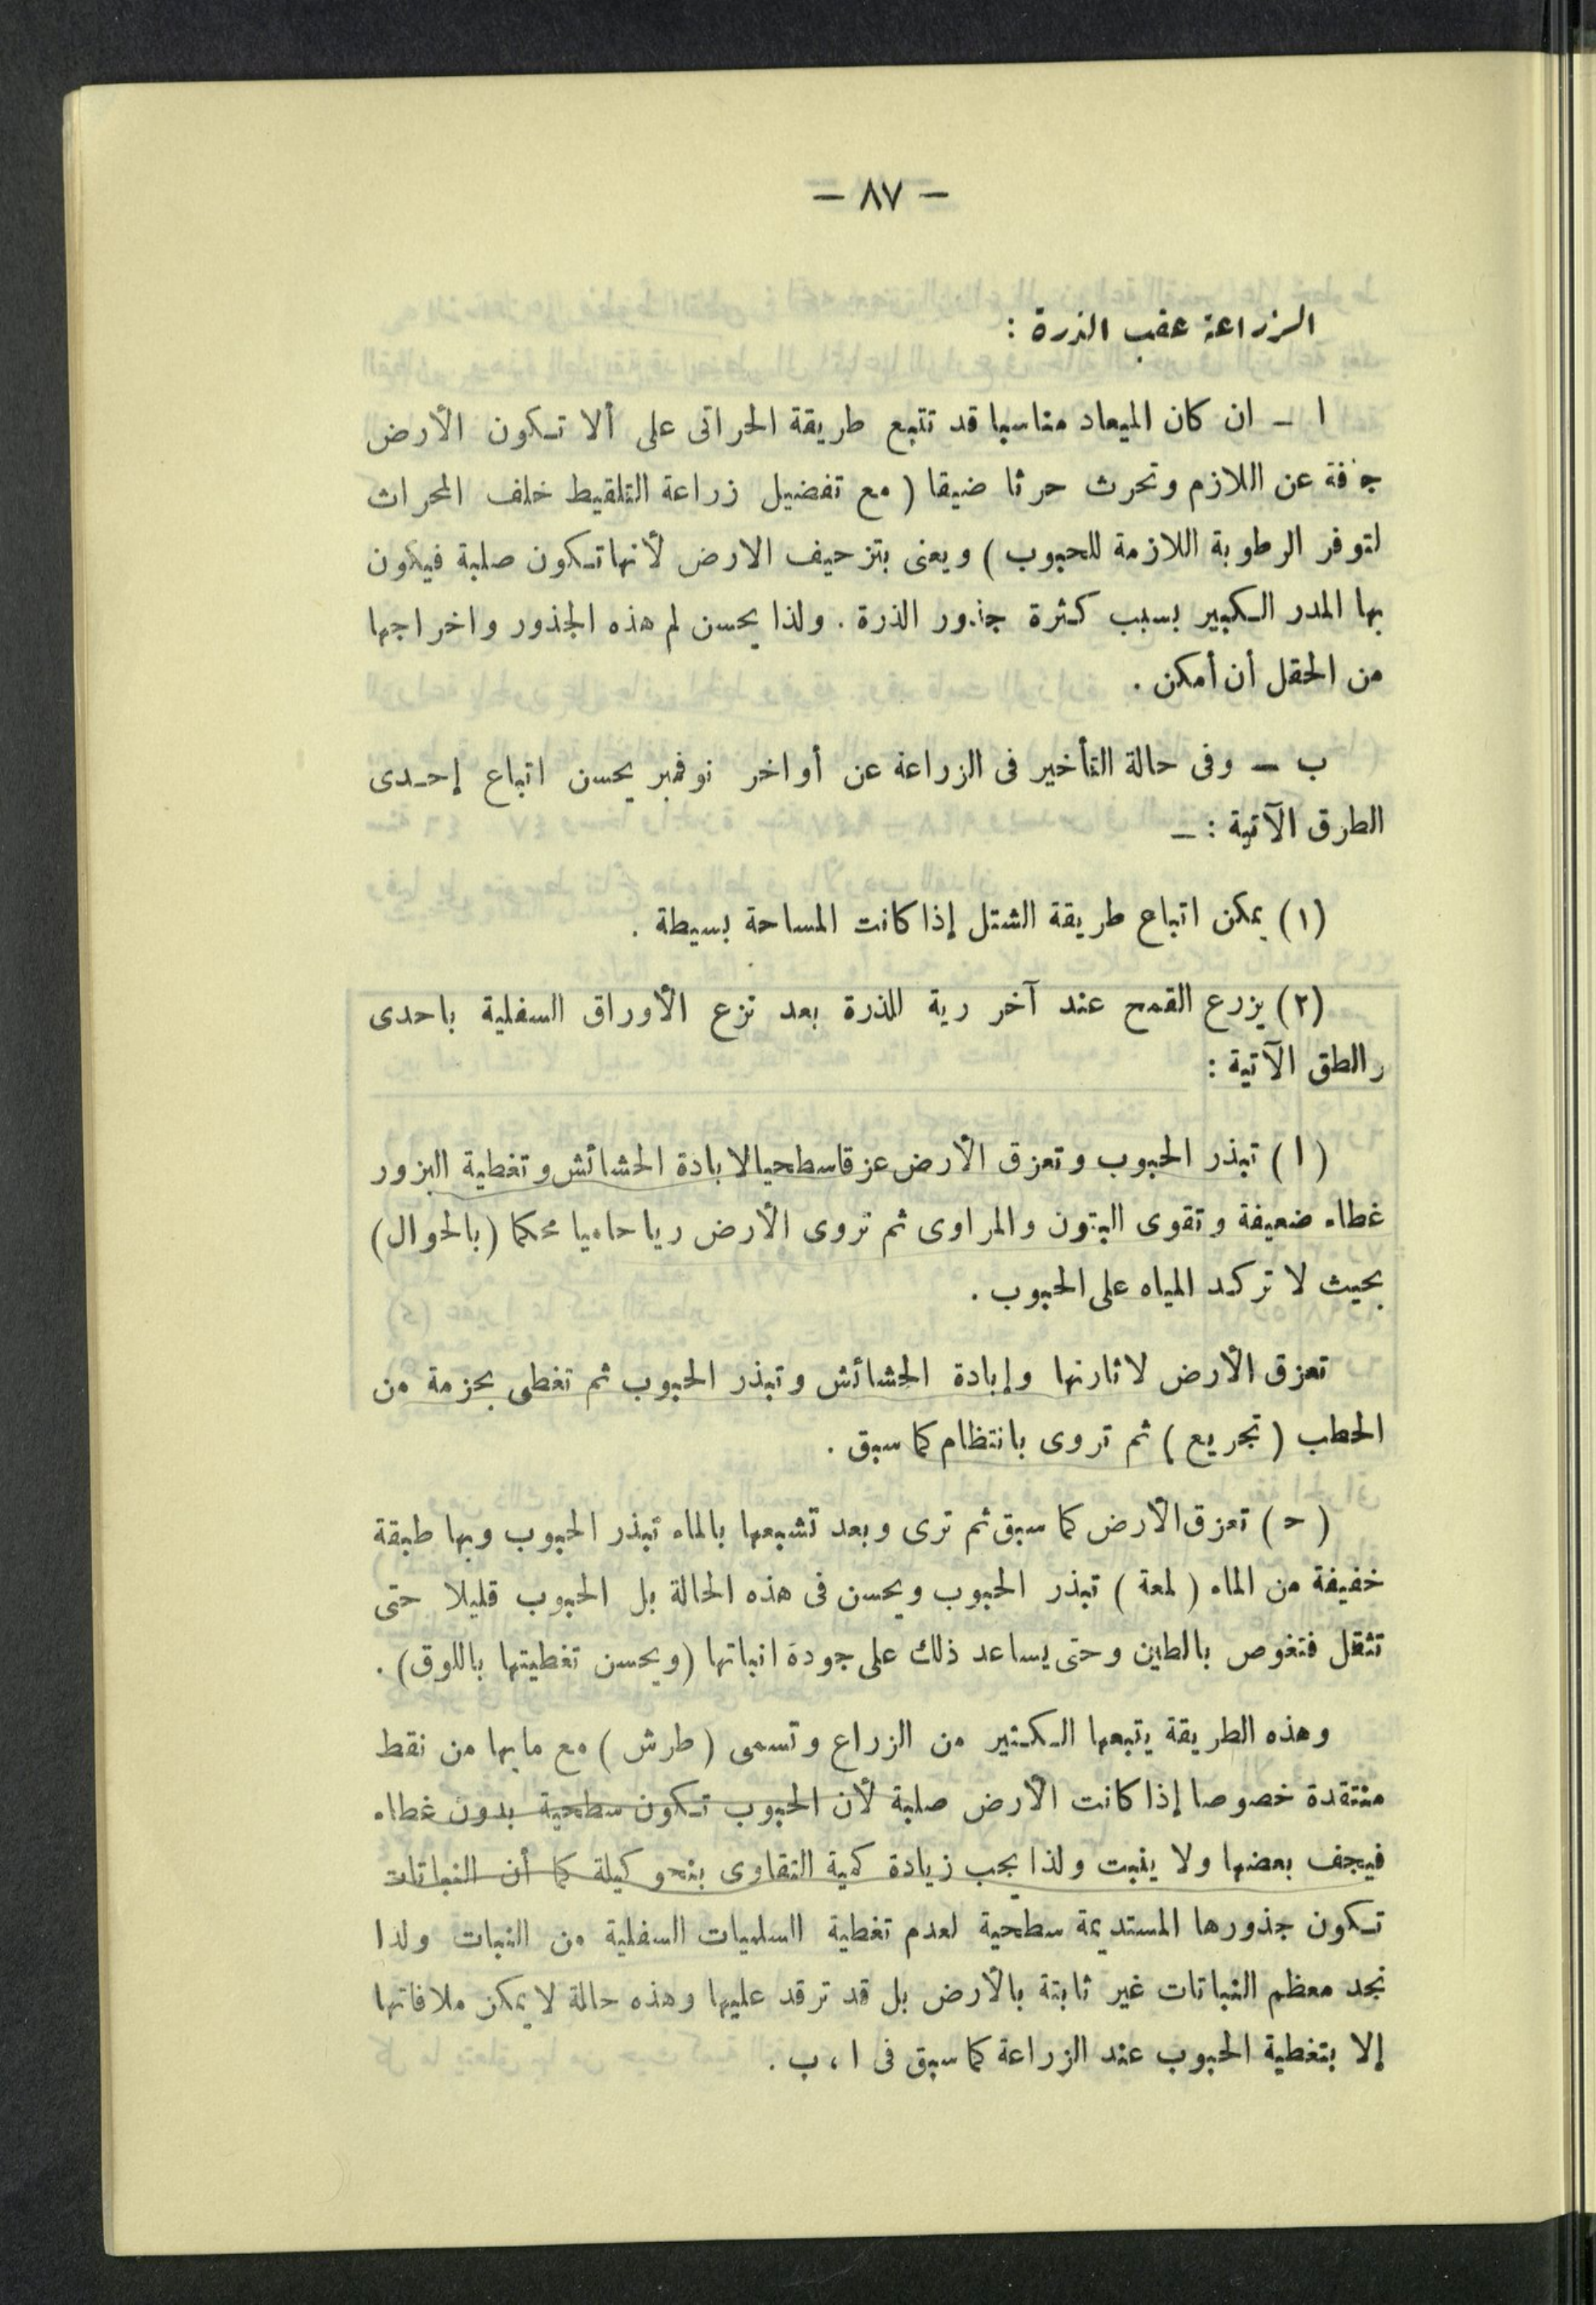 — ٨٧ —
الزراعة عقب الذرة :
ا ـ ان كان الميعاد مناسبا قد تتبع طريقة الحراتى على ألا تكون الأرض
جافة عن اللازم وتحرث حرثا ضيقا ( مع تفضيل زراعة التلقيط خلف المحراث
لتوفر الرطوبة اللازمة للحبوب ) ويعنى بتزحيف الارض لأنها تكون صلبة فيكون
بها المدر الكبير بسبب كثرة جذور الذرة . ولذا يحسن لم هذه الجذور واخراجها
من الحقل أن أمكن .
ب — وفى حالة التأخير فى الزراعة عن أواخر نوفمبر يحسن اتباع إحدى
الطرق الآتية : —
(١) يمكن اتباع طريقة الشتل إذا كانت المساحة بسيطة .
(٢) يزرع القمح عند آخر رية للذرة بعد نزع الأوراق السفلية باحدى
رالطق الآتية :
( ا ) تبذر الحبوب وتعزق الأرض عزقا سطحيا لابادة الحشائش وتغطية البزور
غطاء ضعيفة وتقوى البتون والمراوى ثم تروى الأرض ريا حاميا محكما (بالحوال)
بحيث لا تركد المياه على الحبوب .
تعزق الأرض لاثارتها وإبادة الحشائش وتبذر الحبوب ثم تغطى بحزمة من
الحطب ( تجريع ) ثم تروى بانتظام كما سبق .
( ح ) تعزق الأرض كما سبق ثم ترى وبعد تشبعها بالماء تبذر الحبوب وبها طبقة
خفيفة من الماء ( لمعة ) تبذر الحبوب ويحسن فى هذه الحالة بل الحبوب قليلا حتى
تثقل فتغوص بالطين وحتى يساعد ذلك على جودة انباتها (ويحسن تغطيتها باللوق) .
وهذه الطريقة يتبعها الكثير من الزراع وتسمى ( طرش ) مع ما بها من نقط
منتقدة خصوصا إذا كانت الأرض صلبة لأن الحبوب تكون سطحية بدون غطاء
فيجف بعضها ولا ينبت ولذا يجب زيادة كمية التقاوى بنحو كيلة كما أن النباتات
تكون جذورها المستديمة سطحية لعدم تغطية السلميات السفلية من النبات ولذا
نجد معظم النباتات غير ثابتة بالأرض بل قد ترقد عليها وهذه حالة لا يمكن ملافاتها
إلا بتغطية الحبوب عند الزراعة كما سبق فى ا ، ب .